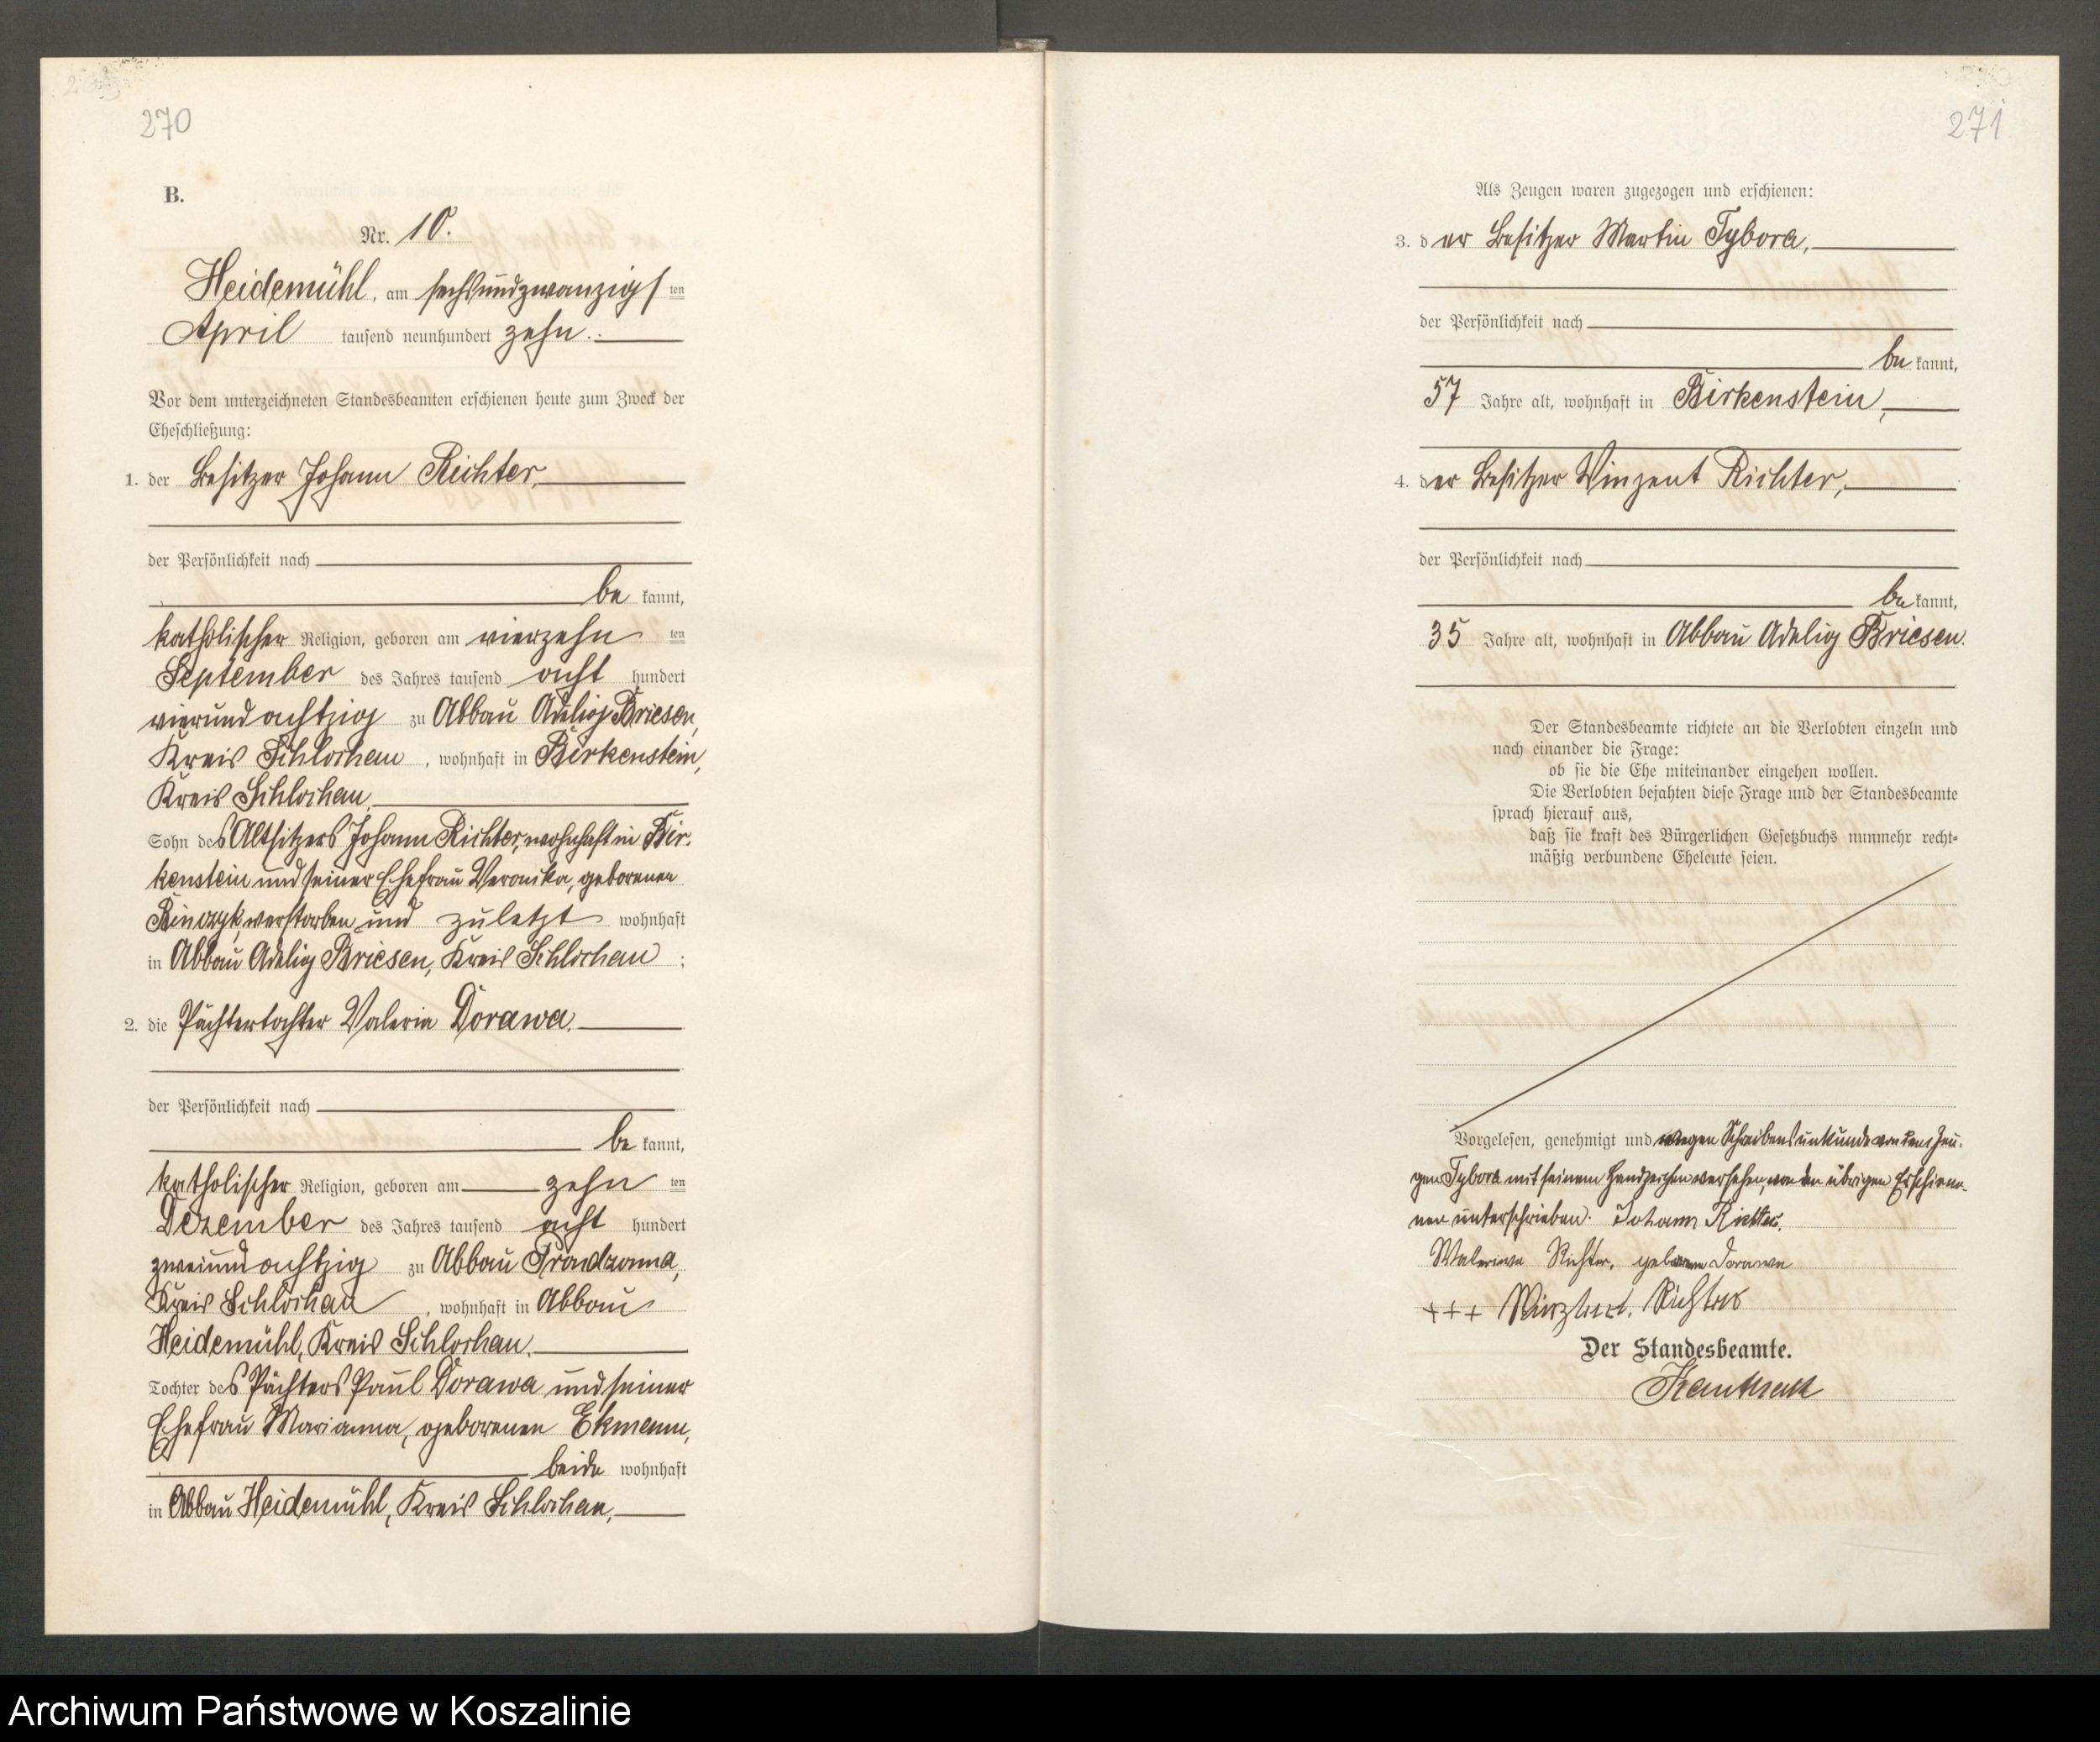 270
B.
Nr. 10.
Heidemühl, am sechsundzwanzigsten
April tausend neunhundert zehn.
Vor dem unterzeichneten Standesbeamten erschienen heute zum Zweck der
Eheschließung:
1. der Besitzer Johann Richter,
der Persönlichkeit nach
bekannt,
katholischer Religion, geboren am vierzehnten
September des Jahres tausend achthundert
vierundachtzig zu Abbau Adelig Briesen,
Kreis Schlochau, wohnhaft in Birkenstein,
Kreis Schlochau,
Sohn des Altsitzers Johann Richter, wohnhaft in Bir-
kenstein und seiner Ehefrau Veronika, geborenen
verstorben und zuletzt wohnhaft
in Abbau Adelig Briesen, Kreis Schlochau;
2. die Pächtertochter Valeria Dorawa,
der Persönlichkeit nach
bekannt,
katholischer Religion, geboren am zehnten
Dezember des Jahres tausend achthundert
zweiundachtzig zu Abbau Prondzonna,
Kreis Schlochau, wohnhaft in Abbau
Heidemühl, Kreis Schlochau,
Tochter des Pächters Paul Dorawa und seiner
Ehefrau Marianna, geborenen Ekmann,
beide wohnhaft
in Abbau Heidemühl, Kreis Schlochau,
271
Als Zeugen waren zugezogen und erschienen:
3. der Besitzer Martin Tybora,
der Persönlichkeit nach
bekannt,
57 Jahre alt, wohnhaft in Birkenstein,
4. der Besitzer Vinzent Richter,
der Persönlichkeit nach
bekannt,
35 Jahre alt, wohnhaft in Abbau Adelig Briesen.
Der Standesbeamte richtete an die Verlobten einzeln und
nach einander die Frage:
ob sie die Ehe miteinander eingehen wollen.
Die Verlobten bejahten diese Frage und der Standesbeamte
sprach hierauf aus,
daß sie kraft des Bürgerlichen Gesetzbuchs nunmehr recht-
mäßig verbundene Eheleute seien.
Vorgelesen, genehmigt und wegen Schreibensunkunde von dem Zeu-
gen Tybora mit seinem Handzeichen versehen, von den übrigen Erschiene-
nen unterschrieben. Johann Richter,
Richter, geborene Dorawa
+++ Richter
Der Standesbeamte.
Archiwum Państwowe w Koszalinie